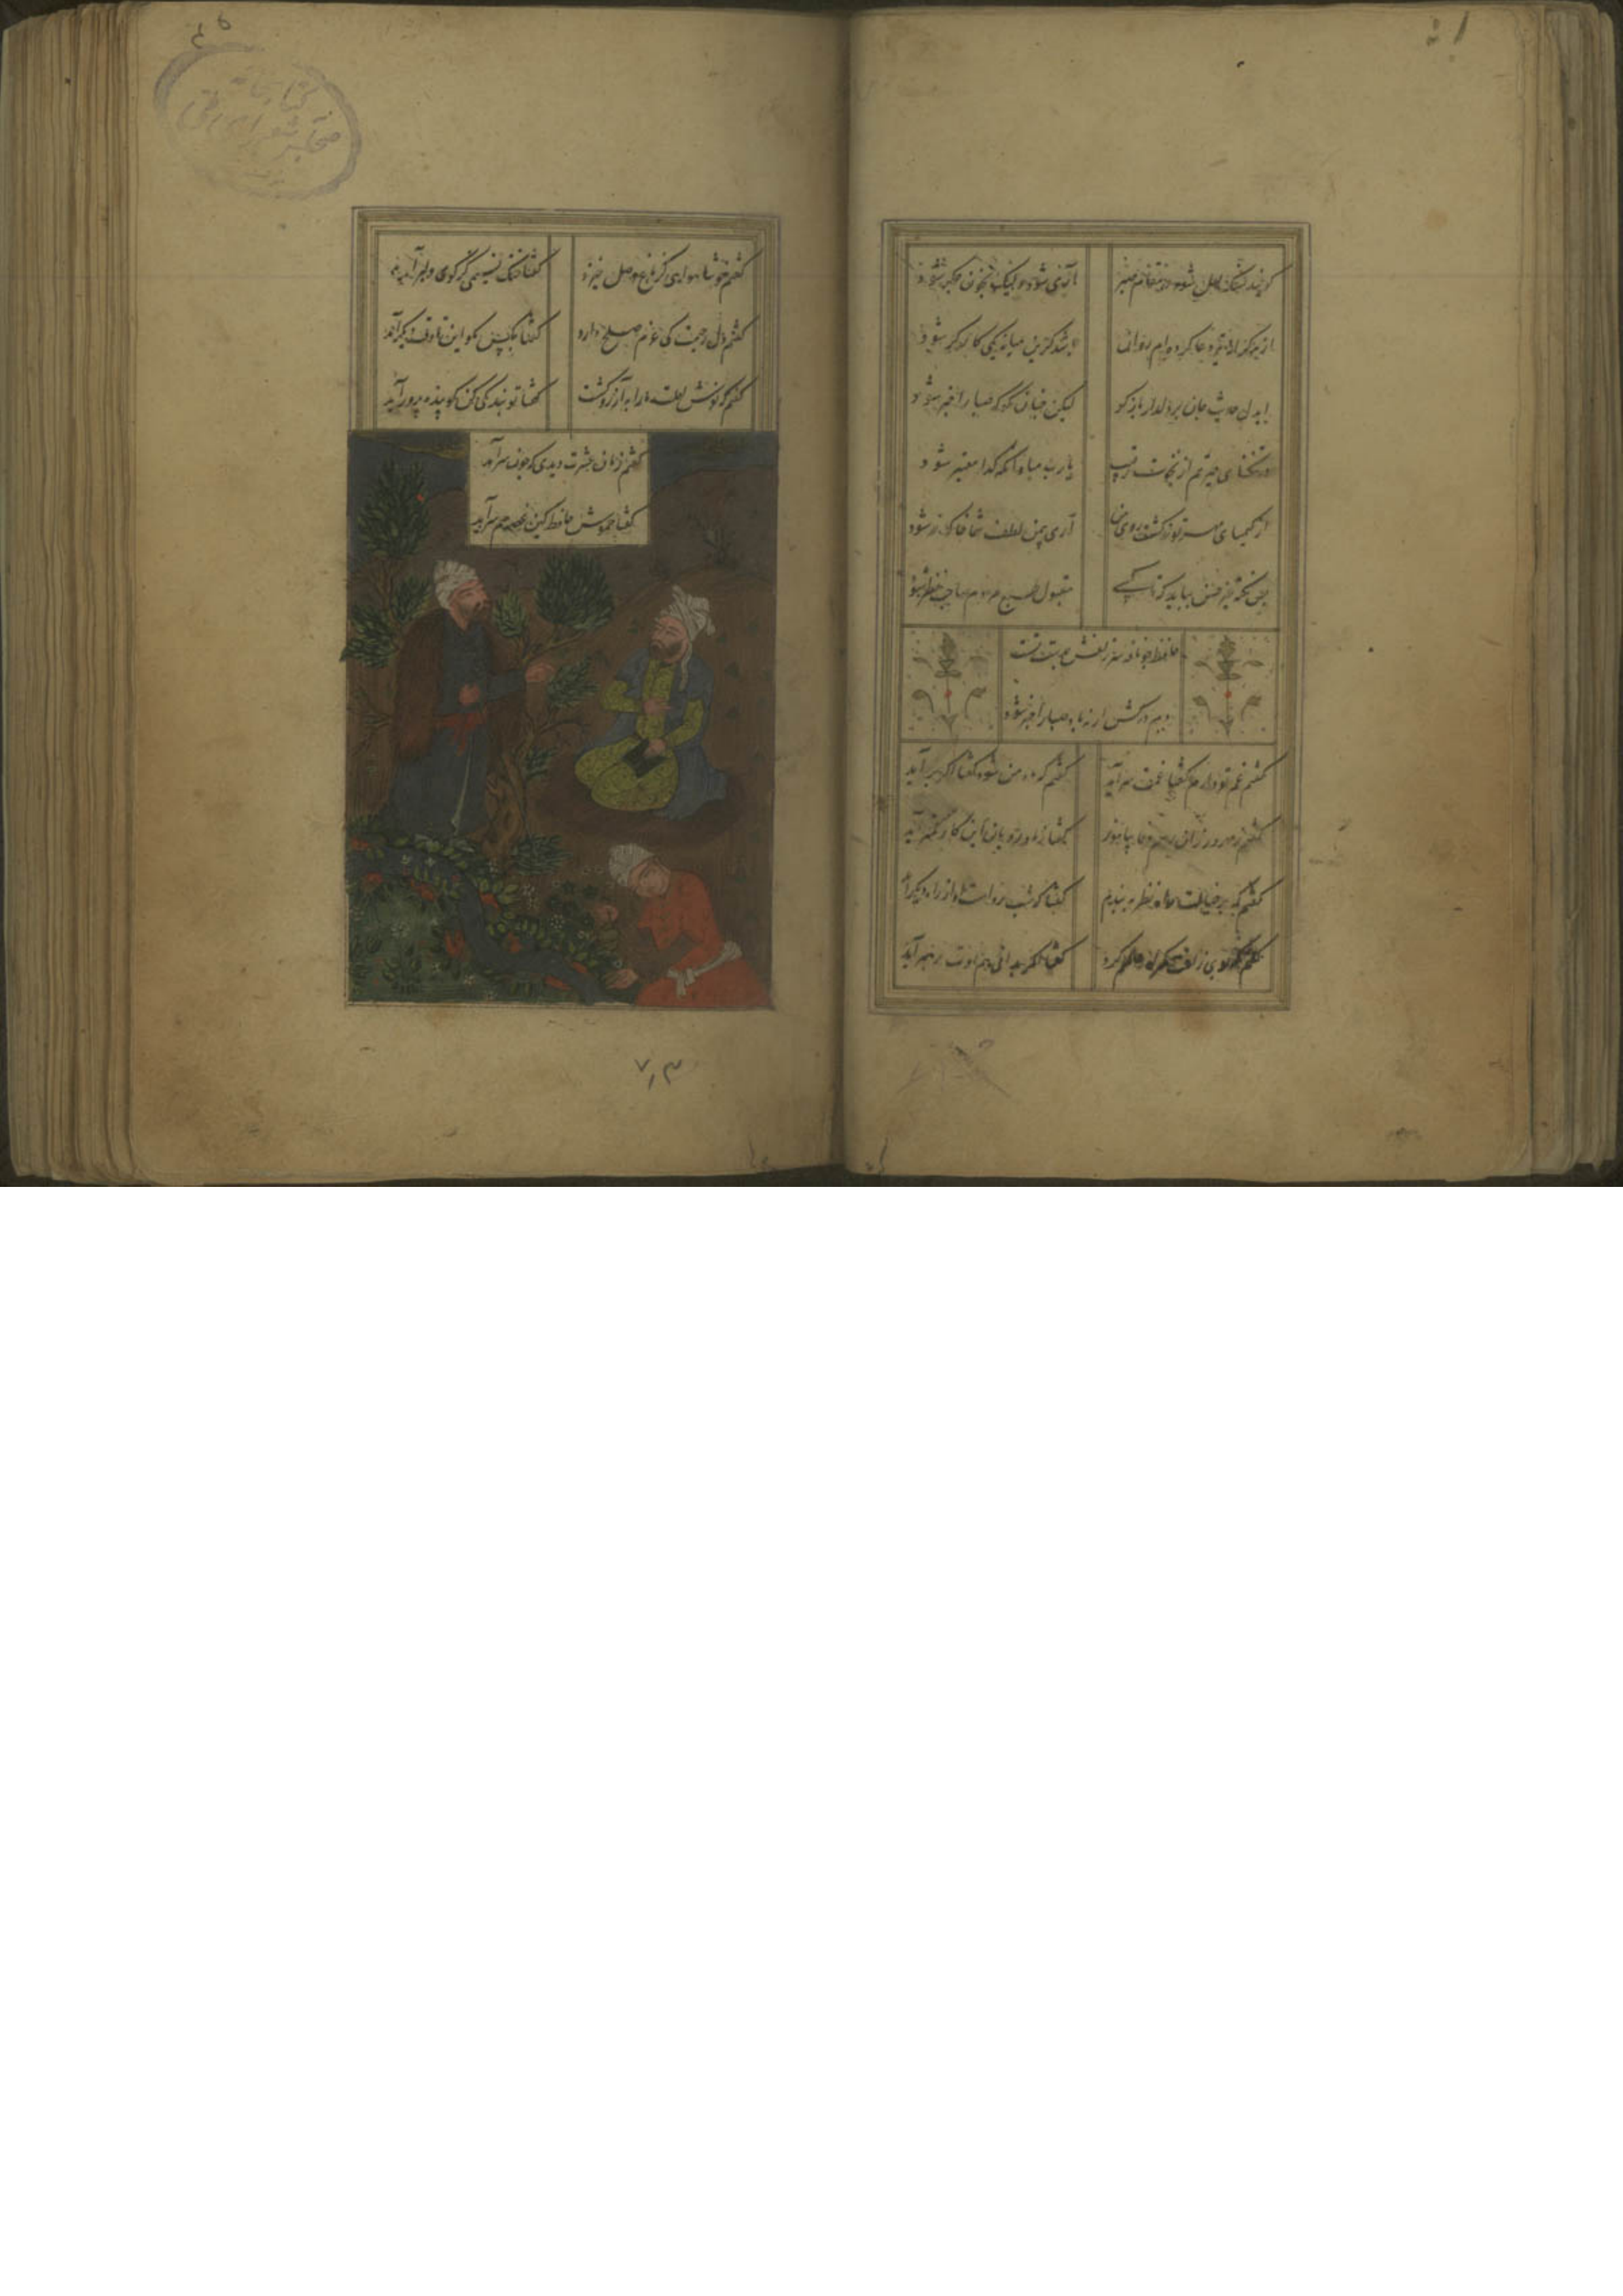 گویند سنگ لعل شود در مقام صبر
آری شود ولیک بخون جکر شود
از هر کرانه تیر دعا کرده ام روان
باشد کزین میانه یکی کارکر شود
ای دل حدیث جان بر دلدار باز کو
لیکن چنان مکو که صبا را خبر شود
در تنکنای حیرتم از نخوت رقیب
یا رب مباد آنکه کدا معتبر شود
از کیمیای مهر تو زر کشت روی من
آری بیمن لطف شما خاک زر شود
بس نکته غیر حسن بباید که تا کسی
مقبول طبع مردم صاحب نظر شود
حافظ چو نافه سر زلفش بدست تست
دم درکش ار نه باد صبا را خبر شود
کفتم غم تو دارم کفتا غمت سر آید
کفتم که ماه من شو کفتا اکر بر آید
کفتم ز مهرورزان رسم وفا بیاموز
کفتا ز ماه رویان این کار کمتر آید
کفتم که بر خیالت راه نظر ببندم
کفتا که شب روست او از راه دیکر آید
کفتم که بوی زلفت کمراه عالمم کرد
کفتا اکر بدانی هم اوت رهبر آید
کفتم خوشا هوایی کز باغ وصل خیزد
کفتا خنک نسیمی کز کوی دلبر آید
کفتم دل رحیمت کی عزم صلح دارد
کفتا بکس مکو این تا وقت دیکر آید
کفتم که نوش لعلت ما را به آرزو کشت
کفتا تو بندکی کن کو بنده پرور آید
کفتم زمان عشرت دیدی که چون سر آمد
کفتا خموش حافظ کین غصه هم سر آید
کتابخانه
مجلس شورای ملی